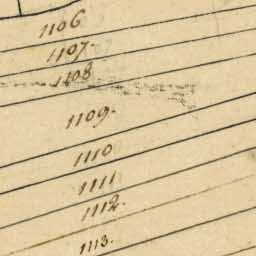 1106
1107.
1108
1109.
1110
1111
1112.
1113.